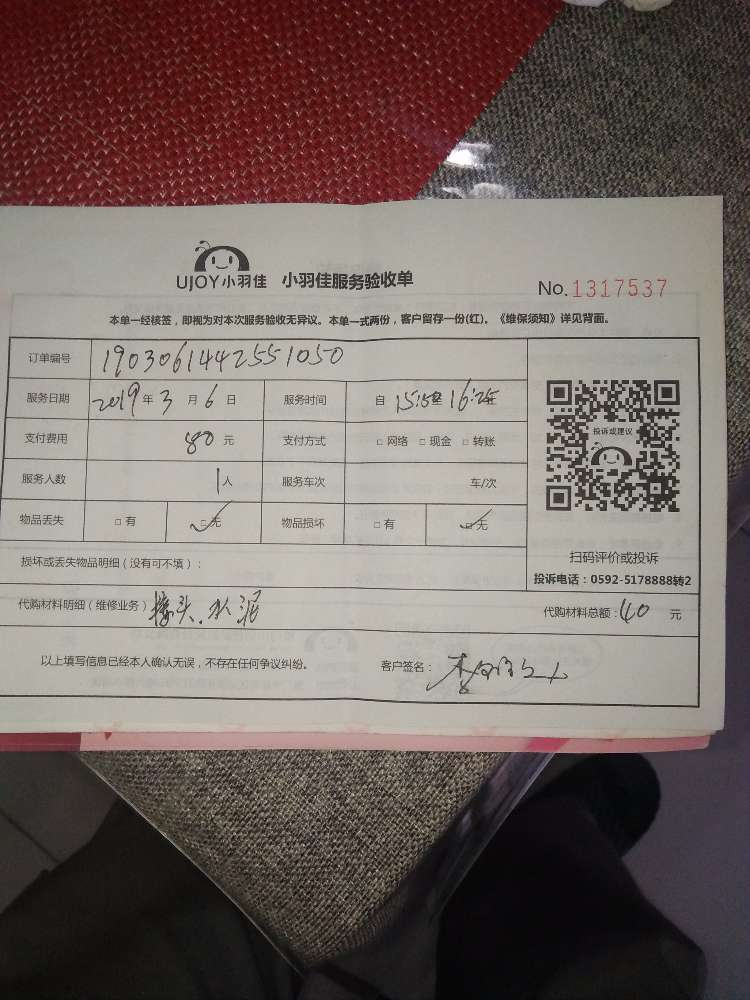 UJOY小羽佳 小羽佳服务验收单 No.1317537
本单一经核签，即视为对本次服务验收无异议。本单一式两份，客户留存一份(红)。《维保须知》详见背面。
订单编号 1903061442551050
服务日期 2019年3月6日 服务时间 自 15:15至16:25
支付费用 80元 支付方式 □网络 □现金 □转账
投诉或建议
服务人数 1人 服务车次 车/次
物品丢失 □有 ☑无 物品损坏 □有 ☑无
扫码评价或投诉
损坏或丢失物品明细（没有可不填）：
投诉电话：0592-5178888转2
代购材料明细（维修业务） 接头.水泥 代购材料总额：40元
以上填写信息已经本人确认无误，不存在任何争议纠纷。 客户签名：